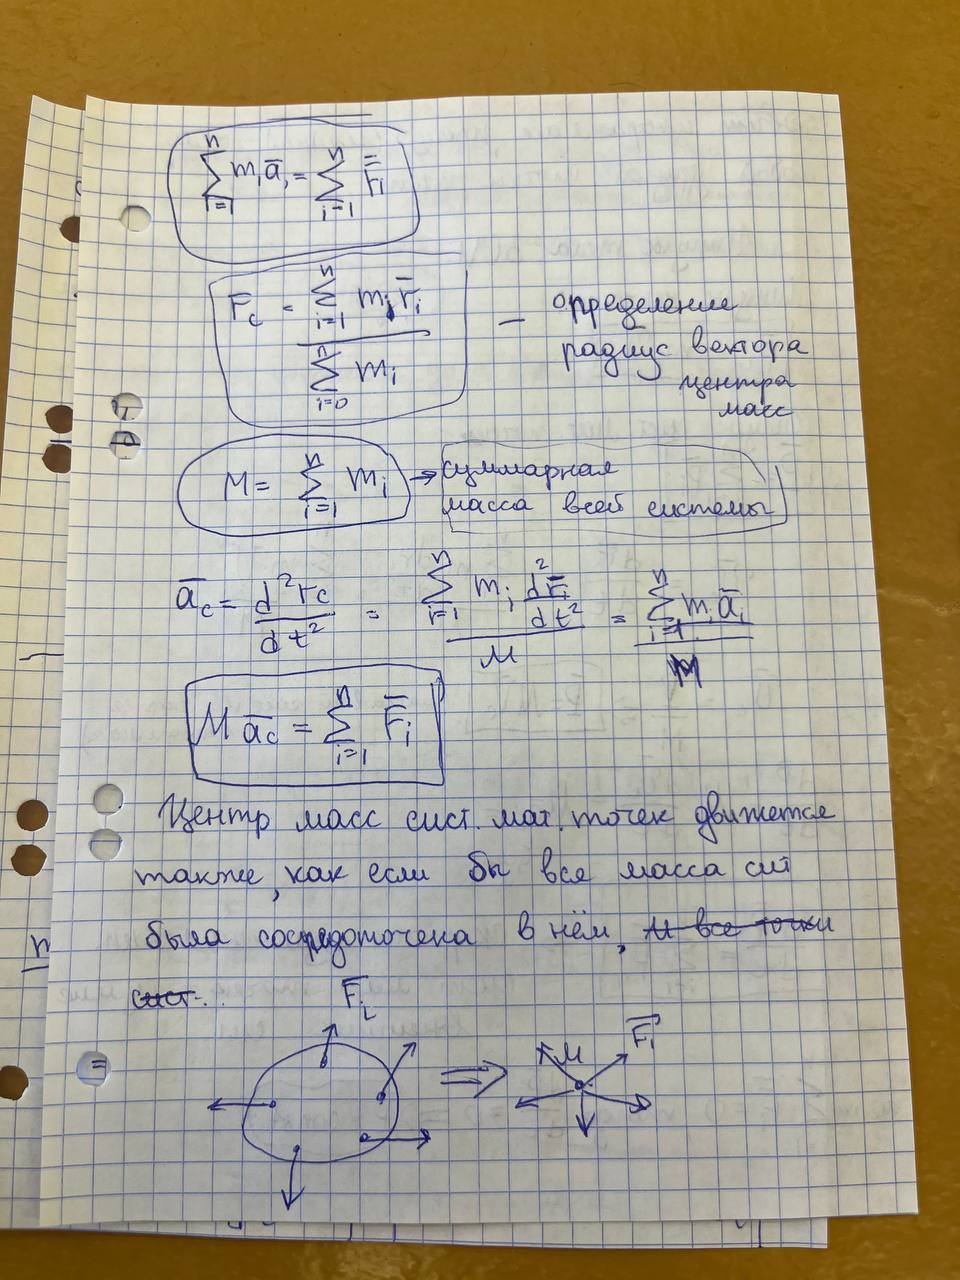 n n
∑ m_i a̅_i = ∑ F̿_i
i=1 i=1
n
∑ m_i r̅_i
F̅_c = i=1 — определение
радиус вектора
n
∑ m_i
i=0
центра
масс
n
M = ∑ m_i → суммарная
i=1 масса всей системы
a̅_c = d²r_c / dt² = ∑ m_i d²r̅_i / dt² / M = ∑ m_i a̅_i / M
n
M a̅_c = ∑ F̿_i
i=1
Центр масс сист. мат. точек движется
также, как если бы вся масса сит
была сосредоточена в нём, и все точки
сист..
F̅_i
⇒ M F̅_i
=